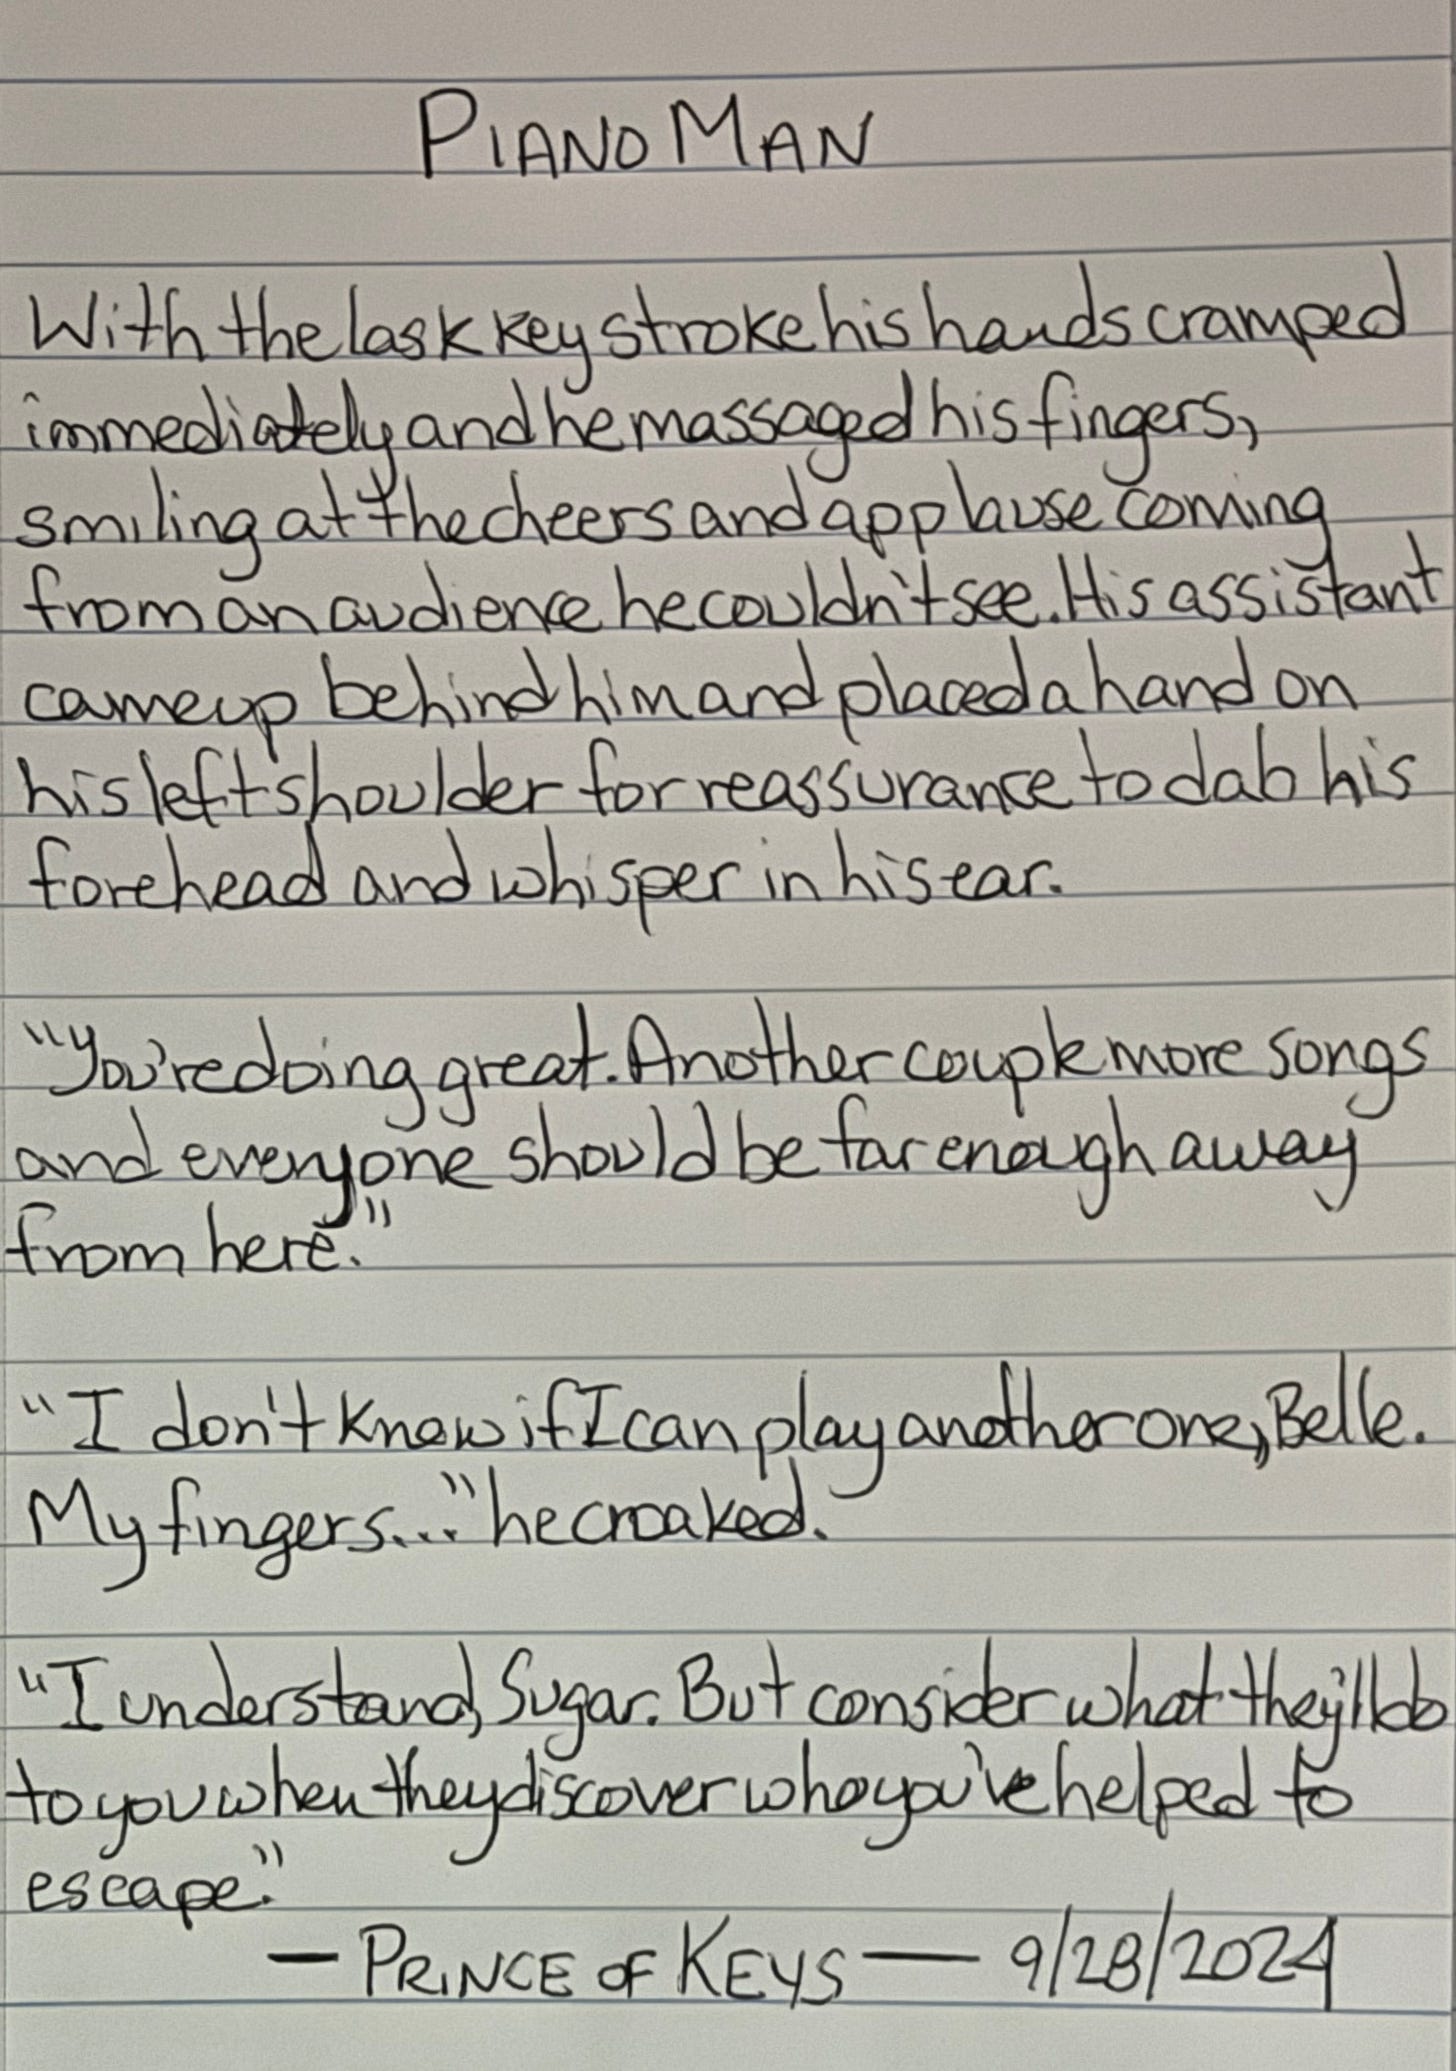 PIANO MAN
With the last key stroke his hands cramped
immediately and he massaged his fingers,
smiling at the cheers and applause coming
from an audience he couldn't see. His assistant
came up behind him and placed a hand on
his left shoulder for reassurance to dab his
forehead and whisper in his ear.
"You're doing great. Another couple more songs
and everyone should be far enough away
from here."
"I don't know if I can play another one, Belle.
My fingers..." he croaked.
"I understand, Sugar. But consider what they'll do
to you when they discover who you've helped to
escape."
— PRINCE OF KEYS — 9/28/2024